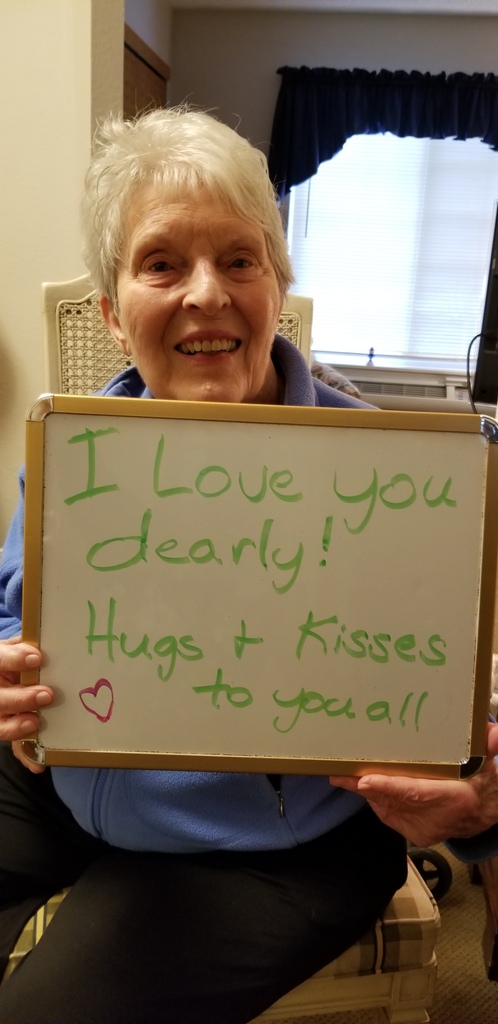 I Love you
dearly!
Hugs + Kisses
to you all